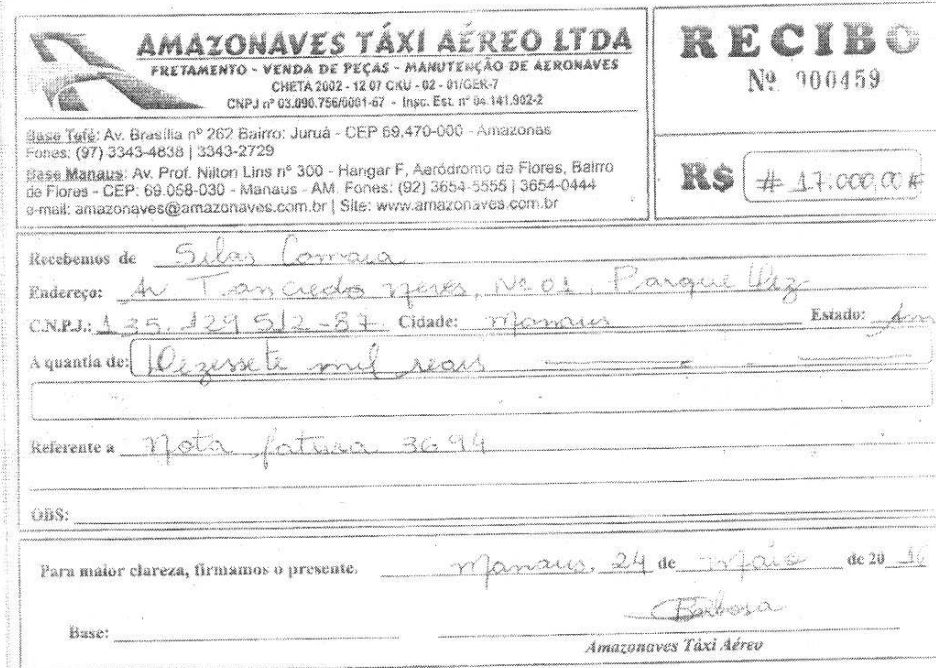 AMAZONAVES TÁXI AÉREO LTDA
FRETAMENTO - VENDA DE PEÇAS - MANUTENÇÃO DE AERONAVES
CHETA 2002 - 12 07 CKU - 02 - 01/GER-7
CNPJ nº 03.090.756/0001-67 - Insc. Est. nº 04.141.902-2
Base Tefé: Av. Brasília nº 262 Bairro: Juruá - CEP 69.470-000 - Amazonas
Fones: (97) 3343-4838 | 3343-2729
Base Manaus: Av. Prof. Nilton Lins nº 300 - Hangar F, Aeródromo de Flores, Bairro
de Flores - CEP: 69.058-030 - Manaus - AM. Fones: (92) 3654-5555 | 3654-0444
e-mail: amazonaves@amazonaves.com.br | Site: www.amazonaves.com.br
RECIBO
Nº 000459
R$ # 17.000,00 #
Recebemos de Silas Camara
Endereço: Av Tancredo neves, Nº 01, Parque Dez
C.N.P.J.: 135.129 512-87 Cidade: Manaus Estado: Am
A quantia de: Dezessete mil reais
Referente a Nota fatura 3694
OBS:
Para maior clareza, firmamos o presente. Manaus, 24 de Maio de 20 16
Barbosa
Base:
Amazonaves Táxi Aéreo